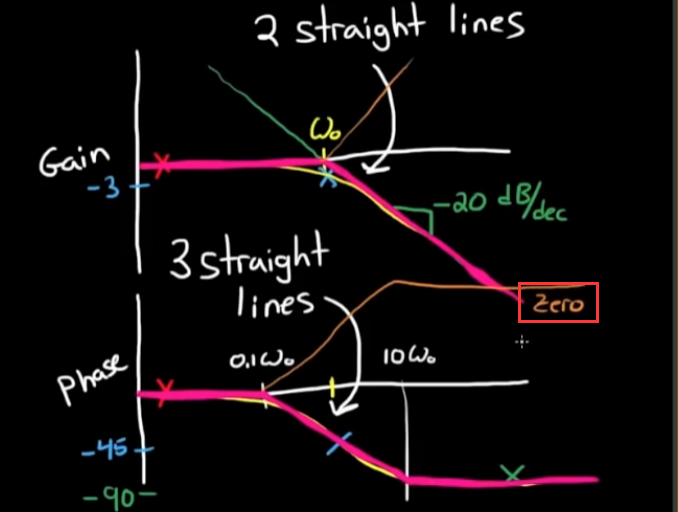 2 straight lines
ω₀
Gain
-3
-20 dB/dec
3 straight
lines
Zero
0.1ω₀
10ω₀
Phase
-45
-90